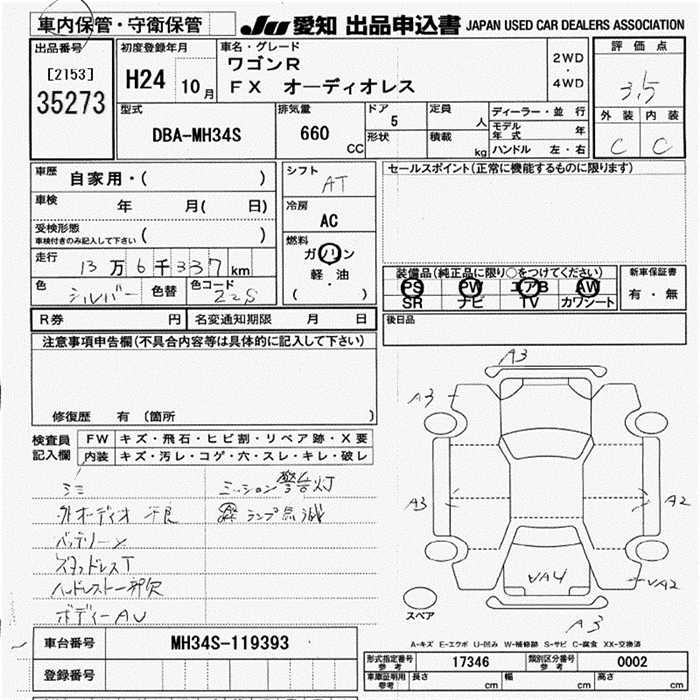 車内保管・守衛保管
JU 愛知 出品申込書 JAPAN USED CAR DEALERS ASSOCIATION
出品番号
[2153]
35273
初度登録年月
H24 10月
車名・グレード
ワゴンR
FX オーディオレス
2WD
・
4WD
評価点
3.5
外装 内装
C C
型式
DBA-MH34S
排気量
660
CC
ドア
5
形状
定員
人
積載
kg
ディーラー・並行
モデル年式 年
ハンドル 左・右
車歴 自家用・( )
車検 年 月( 日)
受検形態
車検付きのみ記入して下さい ( )
走行 13万6千337km
色 シルバー 色替 色コード Z2S
シフト
AT
冷房
AC
燃料
ガソリン
軽・油
( )
セールスポイント(正常に機能するものに限ります)
装備品(純正品に限り○をつけてください)
PS PW エアB AW
SR ナビ TV カワシート
新車保証書
有・無
R券 円 名変通知期限 月 日
後日品
注意事項申告欄(不具合内容等は具体的に記入して下さい)
修復歴 有 〔箇所 〕
検査員
記入欄
FW キズ・飛石・ヒビ割・リペア跡・X要
内装 キズ・汚レ・コゲ・穴・スレ・キレ・破レ
ミッション警告灯
外オーディオ不良
ランプ点滅
バッテリー×
スタッドレスT
ヘッドレスト一部欠
ボディーAU
A3
A3
A3
A2
VA4
VA2
A3
スペア
A-キズ E-エクボ U-凹み W-補修跡 S-サビ C-腐食 XX-交換済
車台番号 MH34S-119393
登録番号
形式指定番号 参考 17346 類別区分番号 参考 0002
車庫証明用 参考 長さ cm 幅 cm 高さ cm